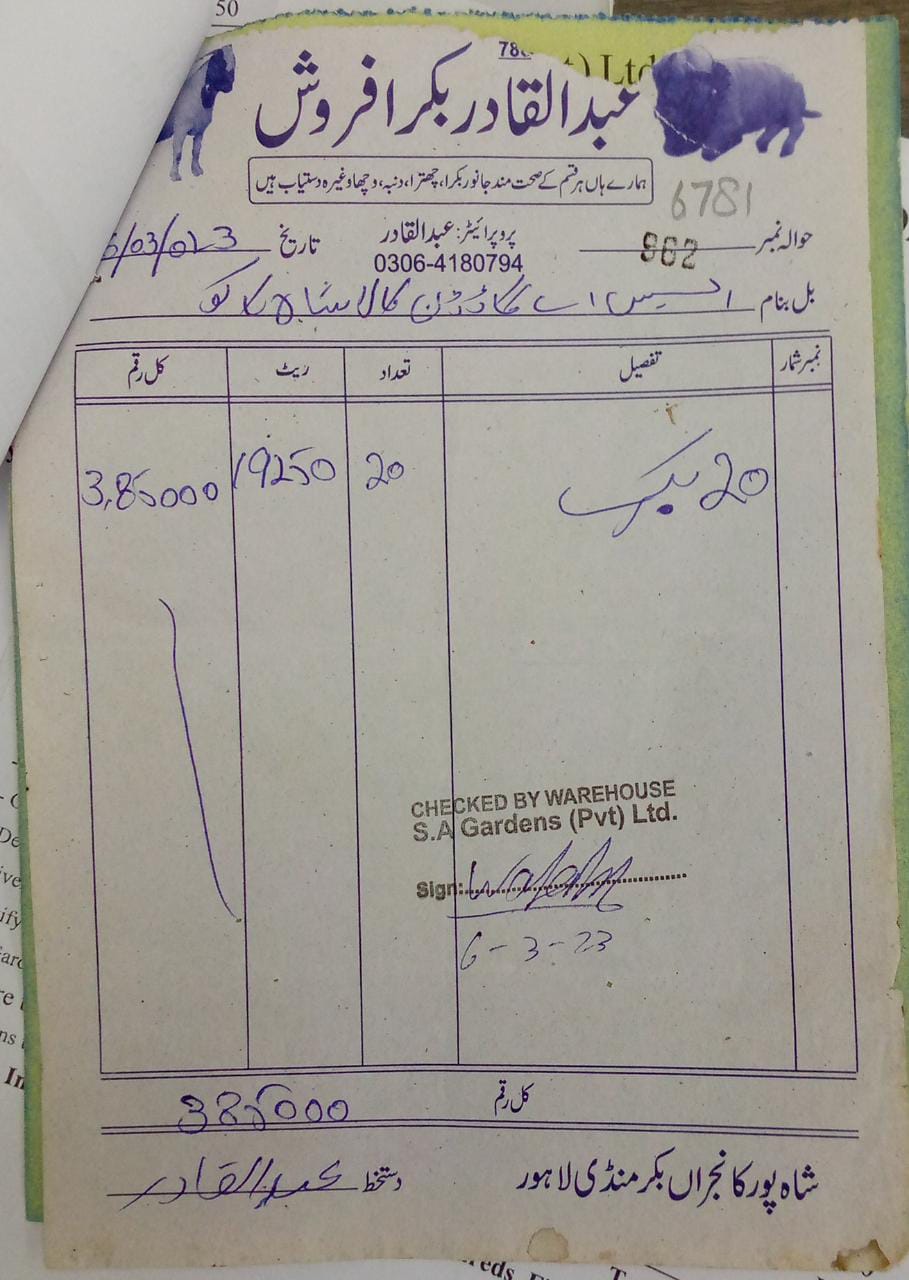 50
) Ltd
عبدالقادر بکرا فروش
ہمارے ہاں ہر قسم کے صحت مند جانور بکرا، چھترا، دنبہ، وچھا وغیرہ دستیاب ہیں
6781
حوالہ نمبر 862
پروپرائیٹر: عبدالقادر
تاریخ 6/03/023
0306-4180794
بل بنام ایس اے گارڈن کالا شاہ کاکو
نمبر شمار تفصیل تعداد ریٹ کل رقم
20 بکرے 20 19250 3,85000
CHECKED BY WAREHOUSE
S.A Gardens (Pvt) Ltd.
Sign:
6-3-23
کل رقم 385000
شاہ پور کانجراں بکر منڈی لاہور
دستخط عبدالقادر